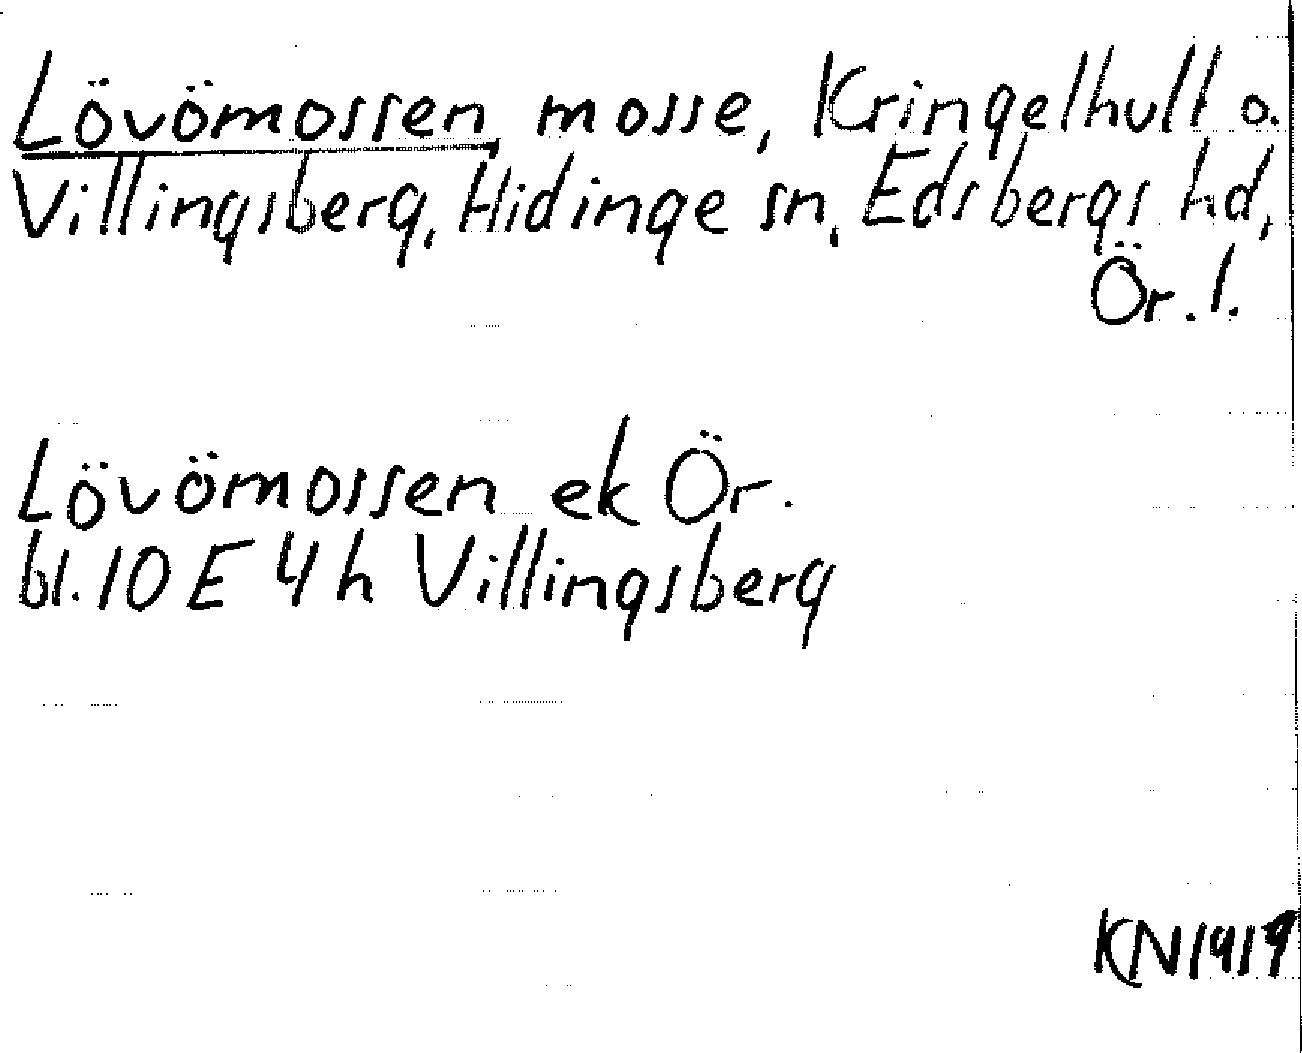 Lövömossen, mosse, Kringelhult o.
Villingsberg, Hidinge sn, Edsbergs hd,
Ör. l.
Lövömossen ek Ör.
bl. 10 E 4 h Villingsberg
KN 1919